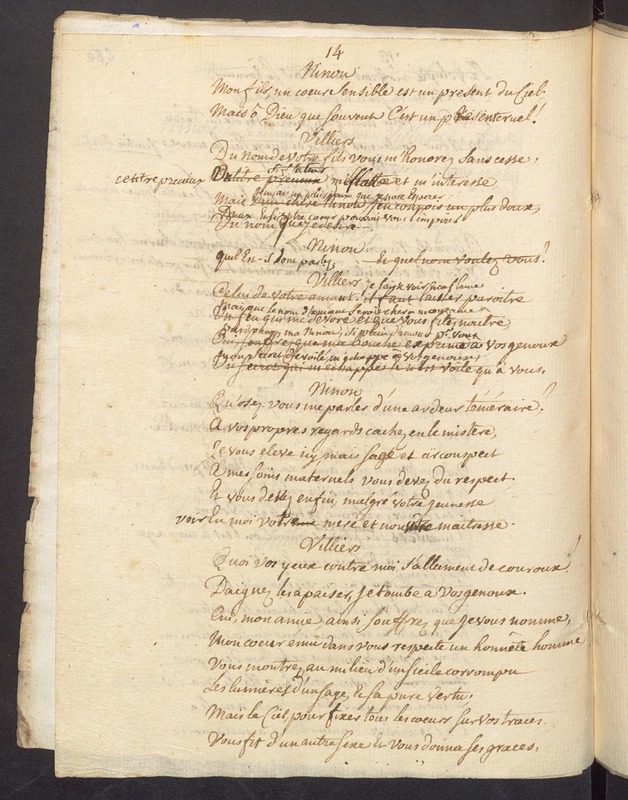 14
Ninon
Mon fils, un coeur sensible est un present du Ciel.
Mais ô Dieu que souvent C'est un présent cruel!
Villiers
Du nom de votre fils vous m'honorez sans cesse,
ce titre precieux
Un titre precieux me flatte et m'interesse
plus que je n'ose
Mais ma chere Ninon j'en conçois un plus doux,
Si votre coeur
Un nom que
Ninon
quel Est-il donc parlez, Et quel nom voulez vous?
Villiers je sais voir ma flame
Celui de votre amant. il faut laisser paroitre
mais que le nom d'amant
Un feu qui me devore et que vous fites naitre
ma Ninon, si plein d'amour
souffrez que ma bouche exprime à vos genoux
Un secret qui m'echappe et n'est voilé qu'à vous.
Ninon
Qu'osez vous me parler d'une ardeur téméraire!
A vos propres regards cachez en le mistere,
Je vous eleve icy mais sage et circonspect
A mes soins maternels vous devez du respect
Et vous devez enfin, malgré votre jeunesse
voir En moi votre mere et non votre maitresse.
Villiers
Quoi vos yeux contre moi s'allument de couroux!
Daignez les apaiser, je tombe à vos genoux.
Oui, mon amie ainsi souffrez que je vous nomme,
Mon coeur emu dans vous respecte un honnête homme
Vous montrez au milieu d'un siecle corrompu
Les lumieres d'un sage, et sa pure vertu.
Mais le Ciel pour fixer tous les coeurs sur vos traces
Vous fit d'un autre sexe et vous donna ses graces,